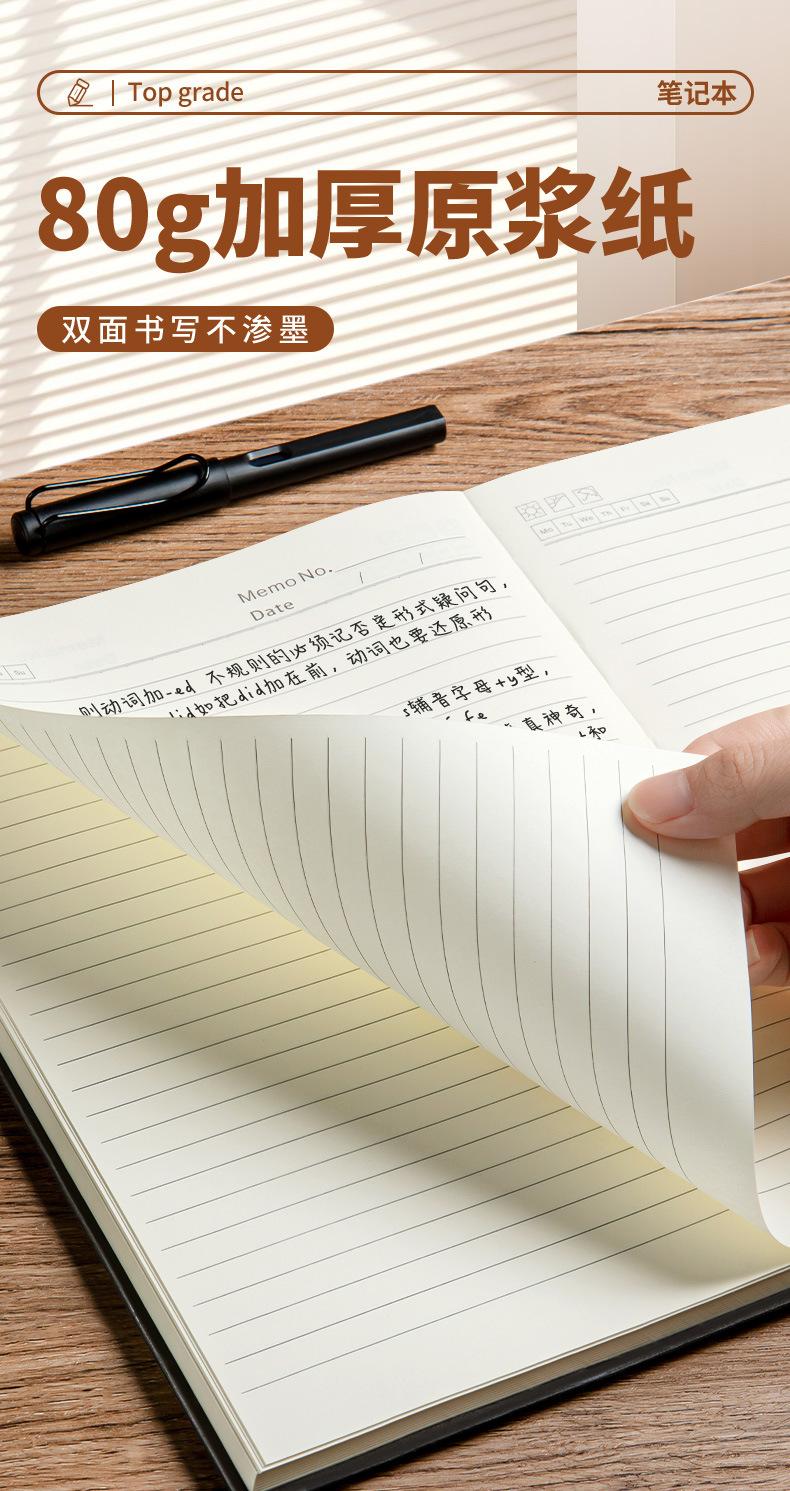 Top grade
笔记本
80g加厚原浆纸
双面书写不渗墨
Memo No.
Date
Mo Tu We Th Fr Sa Su
Su
则动词加-ed 不规则的必须记否定形式疑问句,
did如把did加在前,动词也要还原形
辅音字母+y型,
fe
真神奇,
和